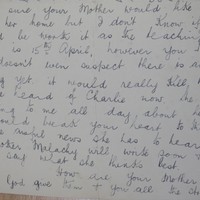 sure your Mother would like
her home but I don't know if
be worth it as the teaching
is 15th April, however you
doesn't even suspect there is a
yet, it would really kill
heard of Charlie now, he
to me all day about h
would break your heart to
awful news she has to hear
Mother Malachy will write soon
say what she thinks best
How are your Mother
God give them & you all the